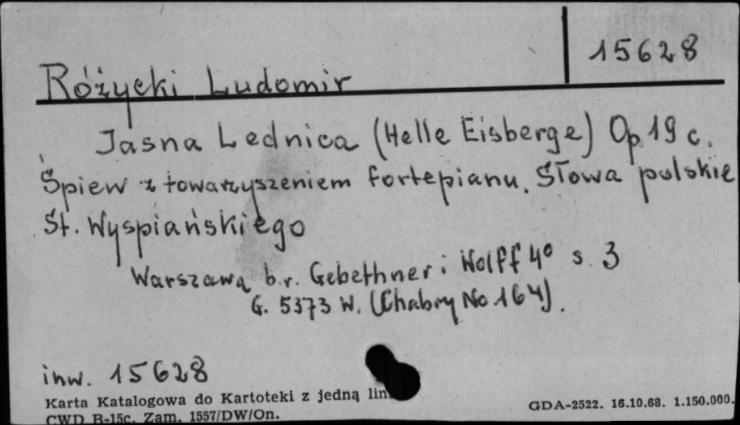 15628
Różycki Ludomir
Jasna Lednica (Helle Eisberge) Op 19 c.
Śpiew z towarzyszeniem fortepianu. Słowa polskie
St. Wyspiańskiego
Warszawa b.r. Gebethner i Wolff 4° s. 3
G. 5373 W. (Chabry No 164).
inw. 15628
Karta Katalogowa do Kartoteki z jedną lin
GDA-2522. 16.10.68. 1.150.000.
CWD B-15c. Zam. 1557/DW/On.